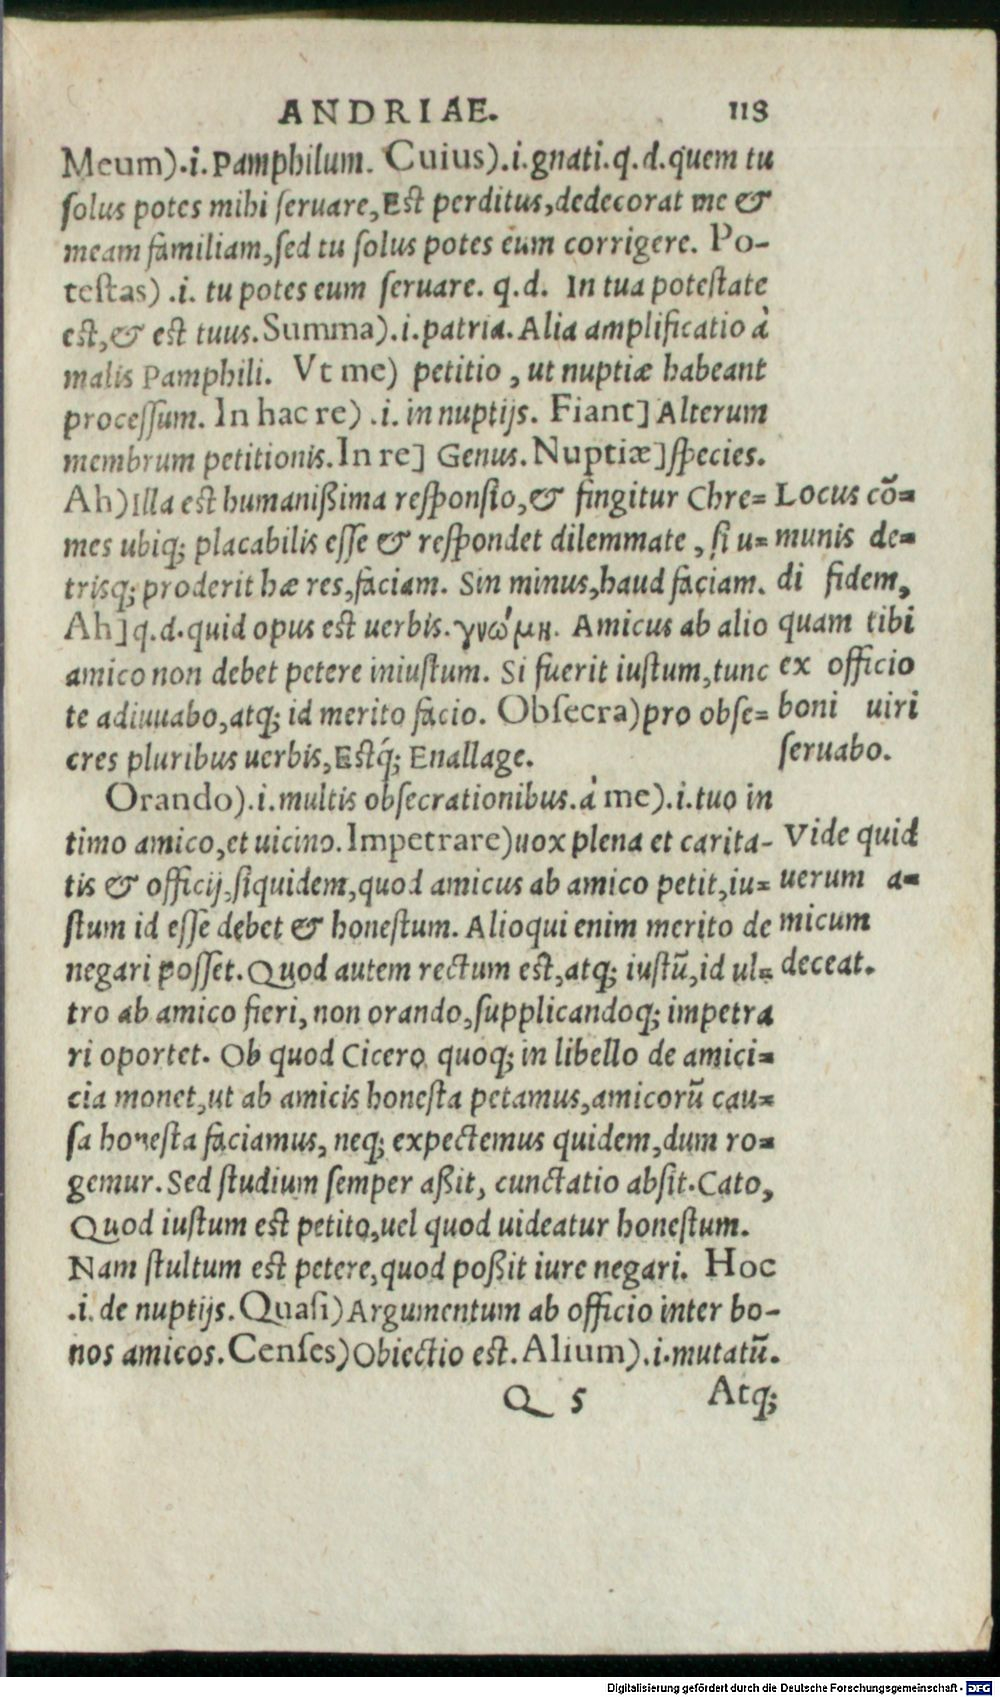 ANDRIAE. 118
Meum).i. Pamphilum. Cuius).i.gnati.q.d.quem tu
solus potes mihi seruare, Est perditus, dedecorat me &
meam familiam, sed tu solus potes eum corrigere. Po-
testas) .i. tu potes eum seruare. q.d. In tua potestate
est, & est tuus. Summa).i.patria. Alia amplificatio à
malis Pamphili. Vt me) petitio, ut nuptiæ habeant
processum. In hac re) .i. in nuptijs. Fiant] Alterum
membrum petitionis. In re] Genus. Nuptiæ] species.
Ah) Illa est humanißima responsio, & fingitur Chre=
mes ubiq; placabilis esse & respondet dilemmate, si u=
trisq; proderit hæ res, faciam. Sin minus, haud faciam.
Ah] q.d. quid opus est uerbis. γνώμη. Amicus ab alio
amico non debet petere iniustum. Si fuerit iustum, tunc
te adiuuabo, atq; id merito facio. Obsecra) pro obse=
cres pluribus uerbis, Estq́; Enallage.
Locus cō=
munis de=
di fidem,
quam tibi
ex officio
boni uiri
seruabo.
Orando).i. multis obsecrationibus. à me).i. tuo in
timo amico, et uicino. Impetrare) uox plena et carita-
tis & officij, siquidem, quod amicus ab amico petit, iu=
stum id esse debet & honestum. Alioqui enim merito de
negari posset. Quod autem rectum est, atq; iustū, id ul=
tro ab amico fieri, non orando, supplicandoq; impetra
ri oportet. Ob quod Cicero quoq; in libello de amici=
cia monet, ut ab amicis honesta petamus, amicorū cau=
sa honesta faciamus, neq; expectemus quidem, dum ro=
gemur. Sed studium semper aßit, cunctatio absit. Cato,
Quod iustum est petito, uel quod uideatur honestum.
Nam stultum est petere, quod poßit iure negari. Hoc
.i. de nuptijs. Quasi) Argumentum ab officio inter bo-
nos amicos. Censes) Obiectio est. Alium).i. mutatū.
Vide quid
uerum a=
micum
deceat.
Q 5 Atq;
Digitalisierung gefördert durch die Deutsche Forschungsgemeinschaft - DFG